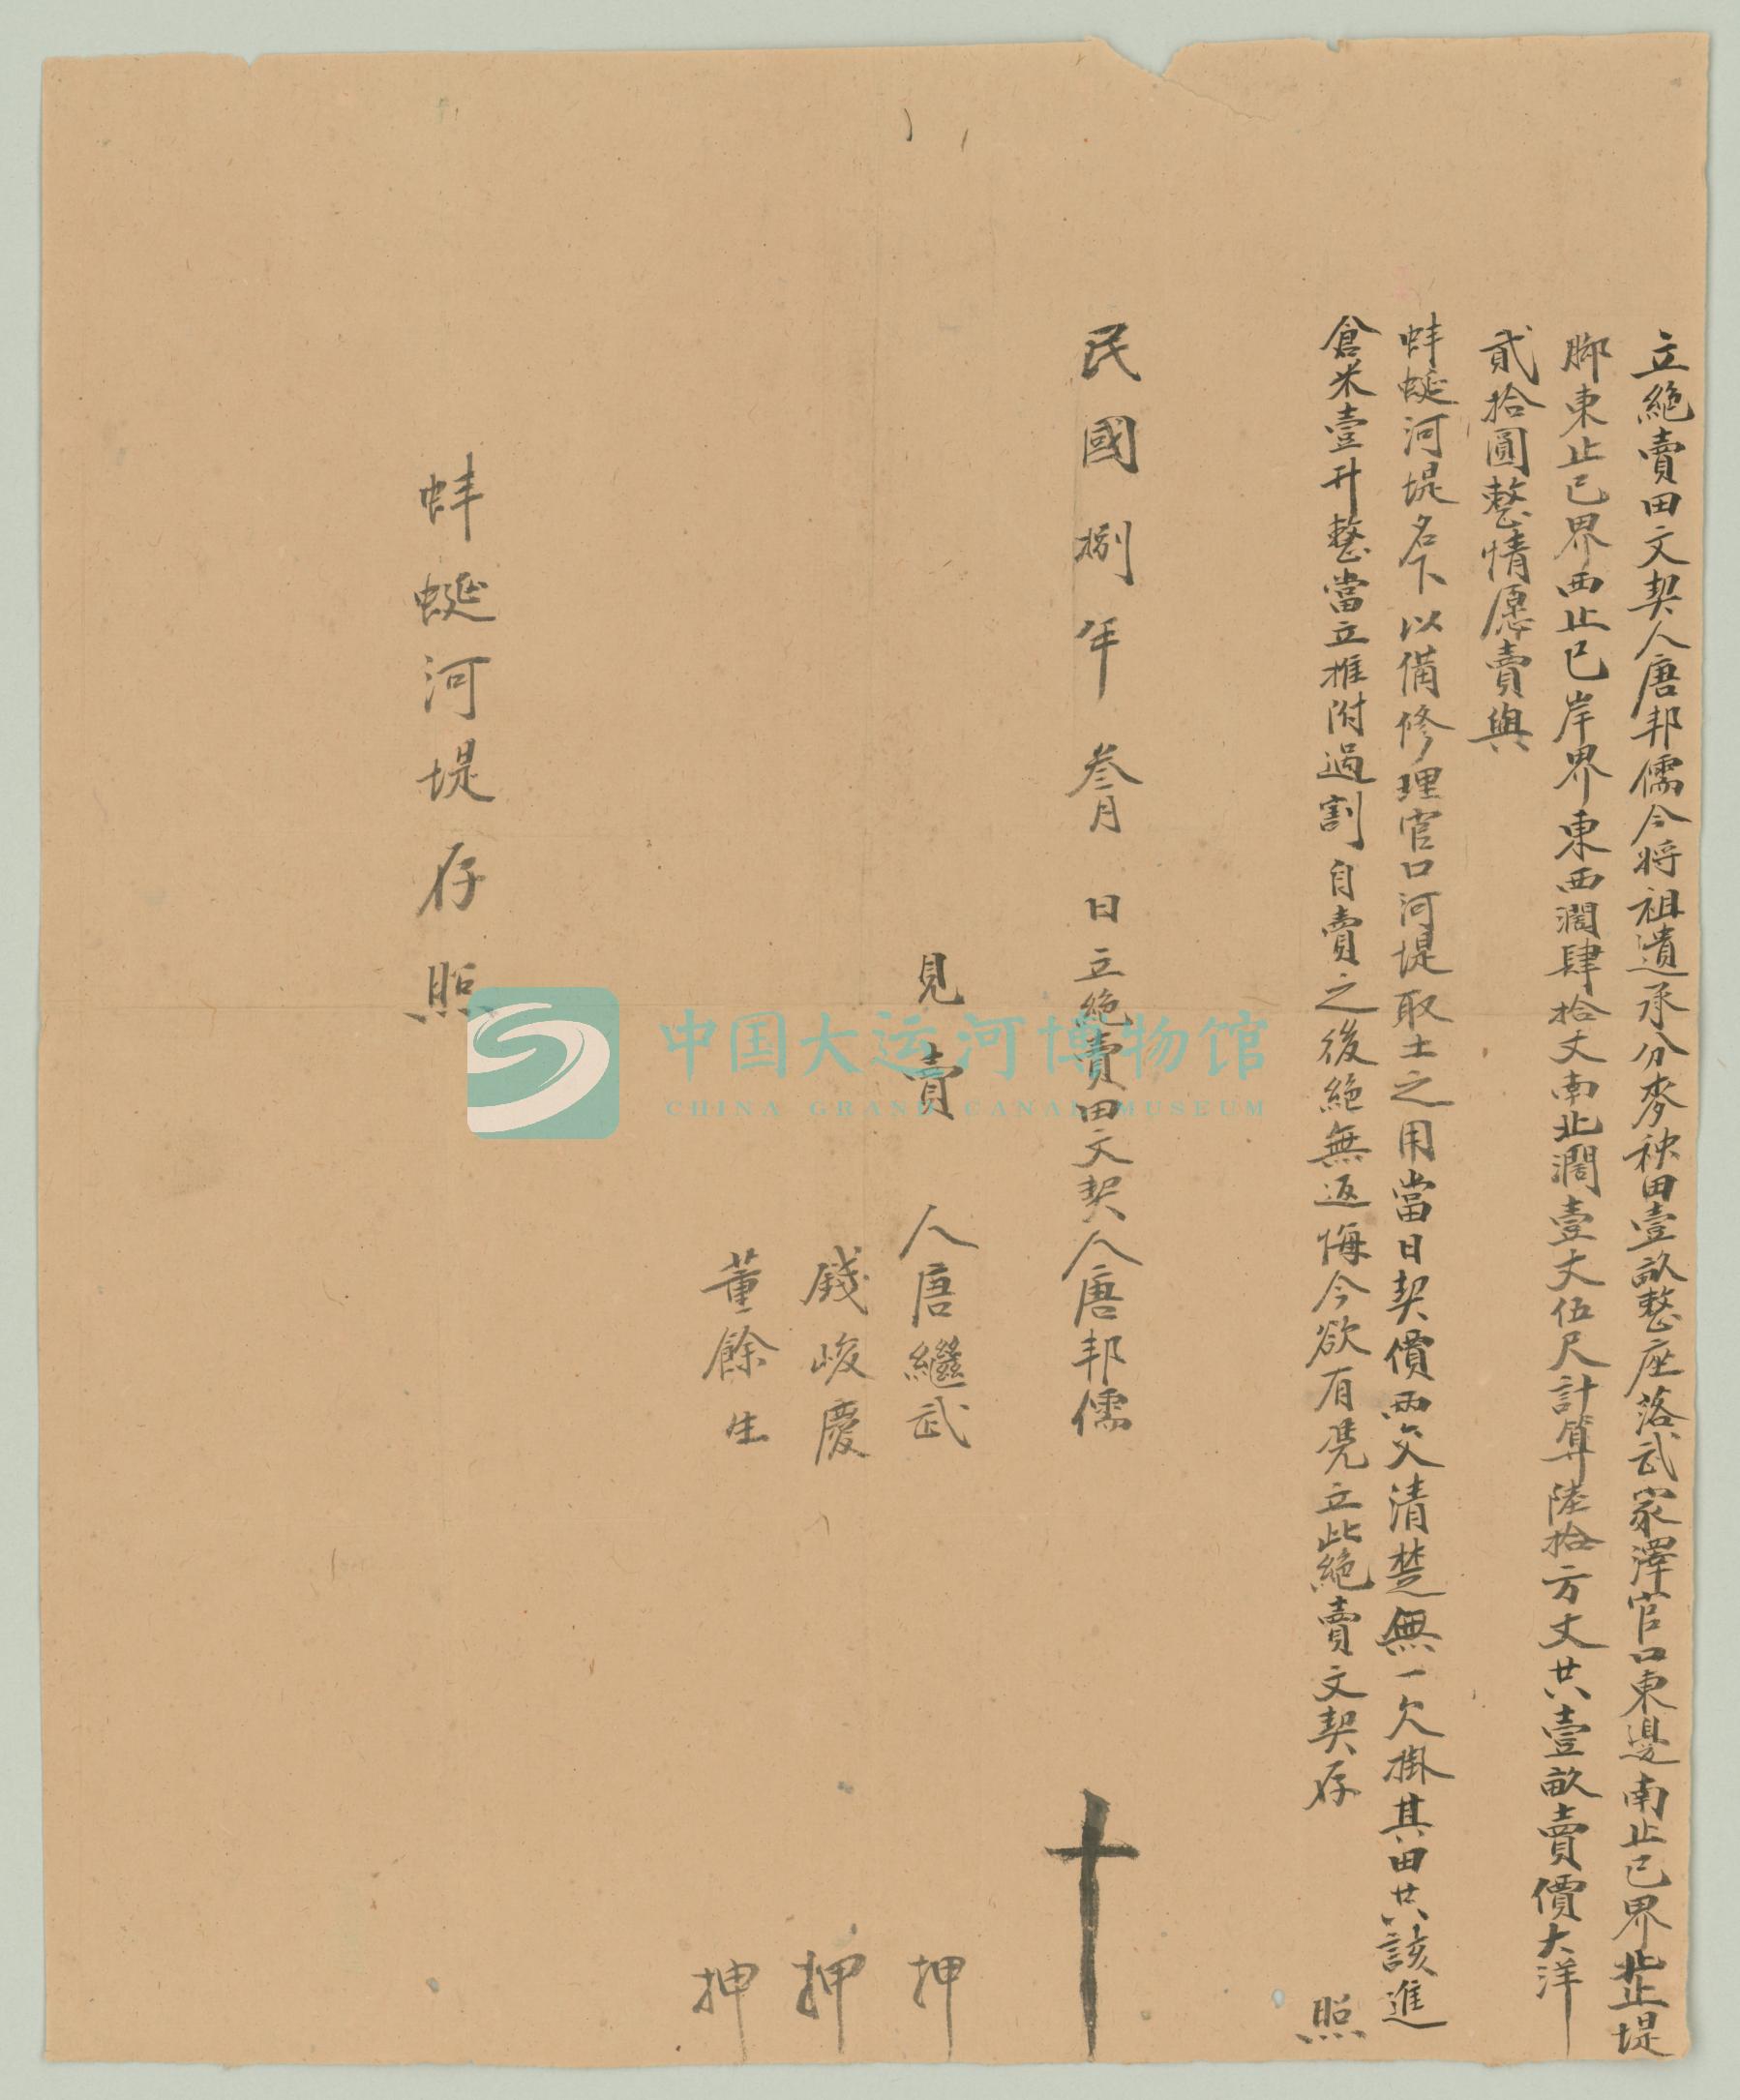 立絶賣田文契人唐邦儒今將祖遺承分麥秧田壹畝整座落武家澤官口東邊南止已界北止堤
脚東止已界西止已岸界東西濶肆拾丈南北濶壹丈伍尺計算陸拾方丈共壹畝賣價大洋
貳拾圓整情愿賣與
蚌蜒河堤名下以備修理官口河堤取土之用當日契價兩交清楚無一欠掛其田共該進
倉米壹升整當立推附過割自賣之後絶無返悔今欲有凴立此絶賣文契存 照
民國捌年叁月 日立絶賣田文契人唐邦儒 十
見賣人唐繼武 押
錢峻慶 押
董餘生 押
蚌蜒河堤存照
中国大运河博物馆
CHINA GRAND CANAL MUSEUM